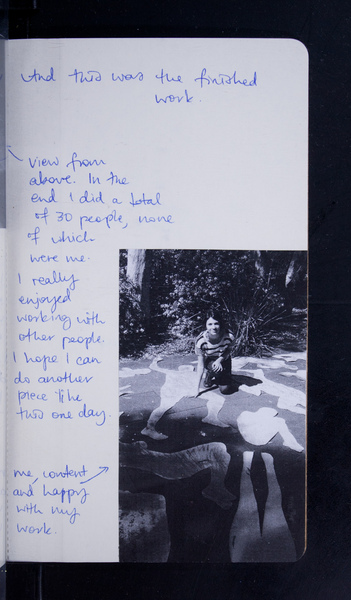 And this was the finished
work.
view from
above. In the
end I did a total
of 30 people, none
of which
were me.
I really
enjoyed
working with
other people.
I hope I can
do another
piece like
this one day.
me, content
and happy
with my
work.